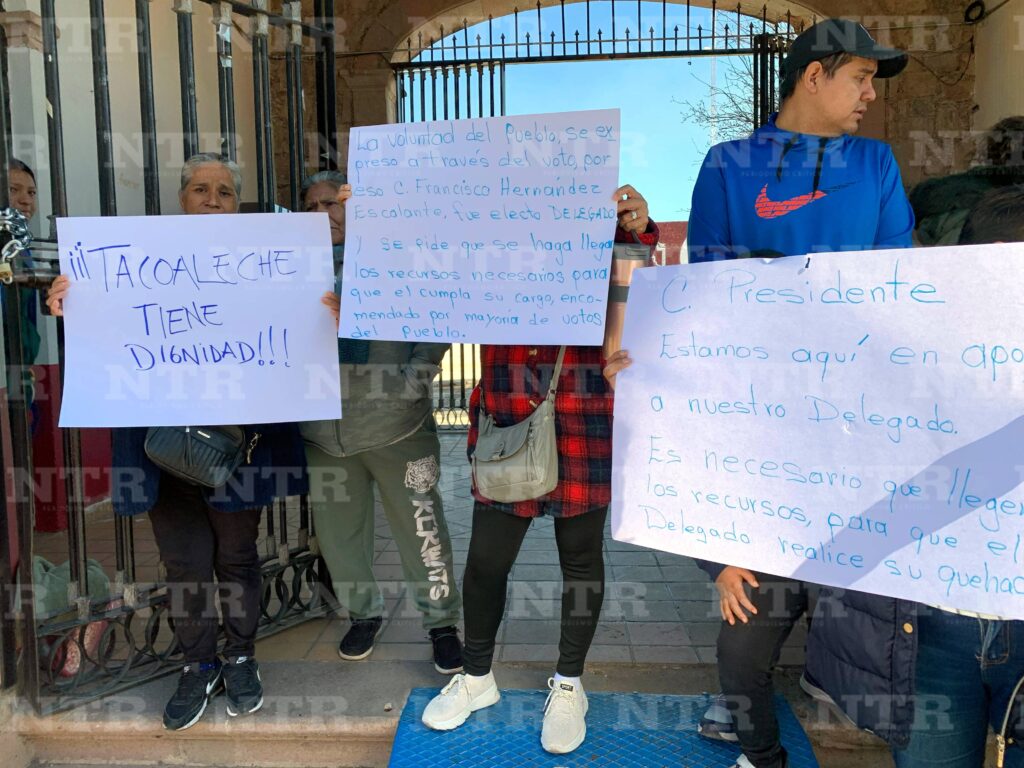 ¡¡¡TACOALECHE
TIENE
DIGNIDAD!!!
La voluntad del Pueblo, se ex
preso a través del voto, por
eso C. Francisco Hernandez
Escalante, fue electo DELEGADO
Y se pide que se haga llegar
los recursos necesarios para
que el cumpla su cargo, enco-
mendado por mayoría de votos
del Pueblo.
C. Presidente
Estamos aquí en apo
a nuestro Delegado.
Es necesario que llegen
los recursos, para que el
Delegado realice su quehac
NTR
PERIODISMO CRÍTICO